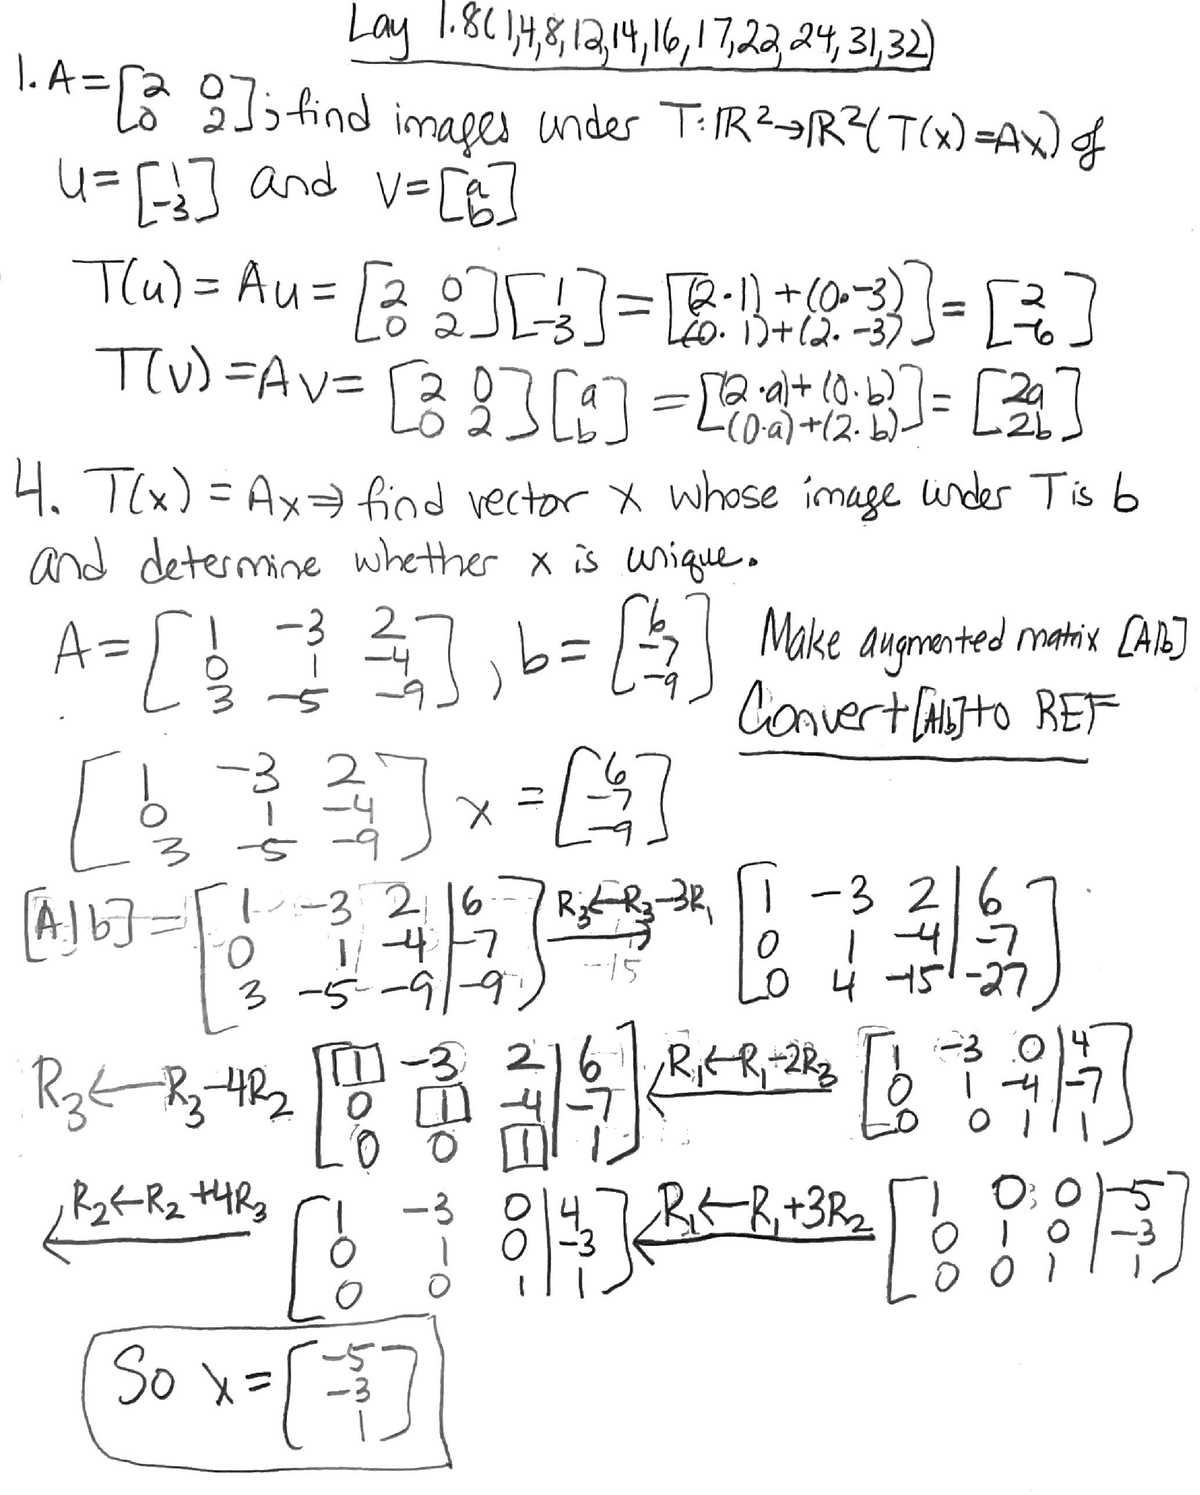 Lay 1.8(1,4,8,12,14,16,17,22,24,31,32)
1. A=[2 0; 0 2]; find images under T:ℝ²→ℝ²(T(x)=Ax) of
u=[1; -3] and v=[a; b]
T(u)=Au=[2 0; 0 2][1; -3]=[(2·1)+(0·-3); (0·1)+(2·-3)]=[2; -6]
T(v)=Av=[2 0; 0 2][a; b]=[(2·a)+(0·b); (0·a)+(2·b)]=[2a; 2b]
4. T(x)=Ax⇒ find vector x whose image under T is b
and determine whether x is unique.
A=[1 -3 2; 0 1 -4; 3 -5 -9], b=[6; -7; -9] Make augmented matrix [A|b]
Convert [A|b] to REF
[1 -3 2; 0 1 -4; 3 -5 -9] x = [6; -7; -9]
[A|b]=[1 -3 2|6; 0 1 -4|-7; 3 -5 -9|-9] R₃←R₃-3R₁ -15 [1 -3 2|6; 0 1 -4|-7; 0 4 -15|-27]
R₃←R₃-4R₂ [1 -3 2|6; 0 1 -4|-7; 0 0 1|1] R₁←R₁-2R₃ [1 -3 0|4; 0 1 -4|-7; 0 0 1|1]
R₂←R₂+4R₃ [1 -3 0|4; 0 1 0|-3; 0 0 1|1] R₁←R₁+3R₂ [1 0 0|-5; 0 1 0|-3; 0 0 1|1]
So x=[-5; -3; 1]